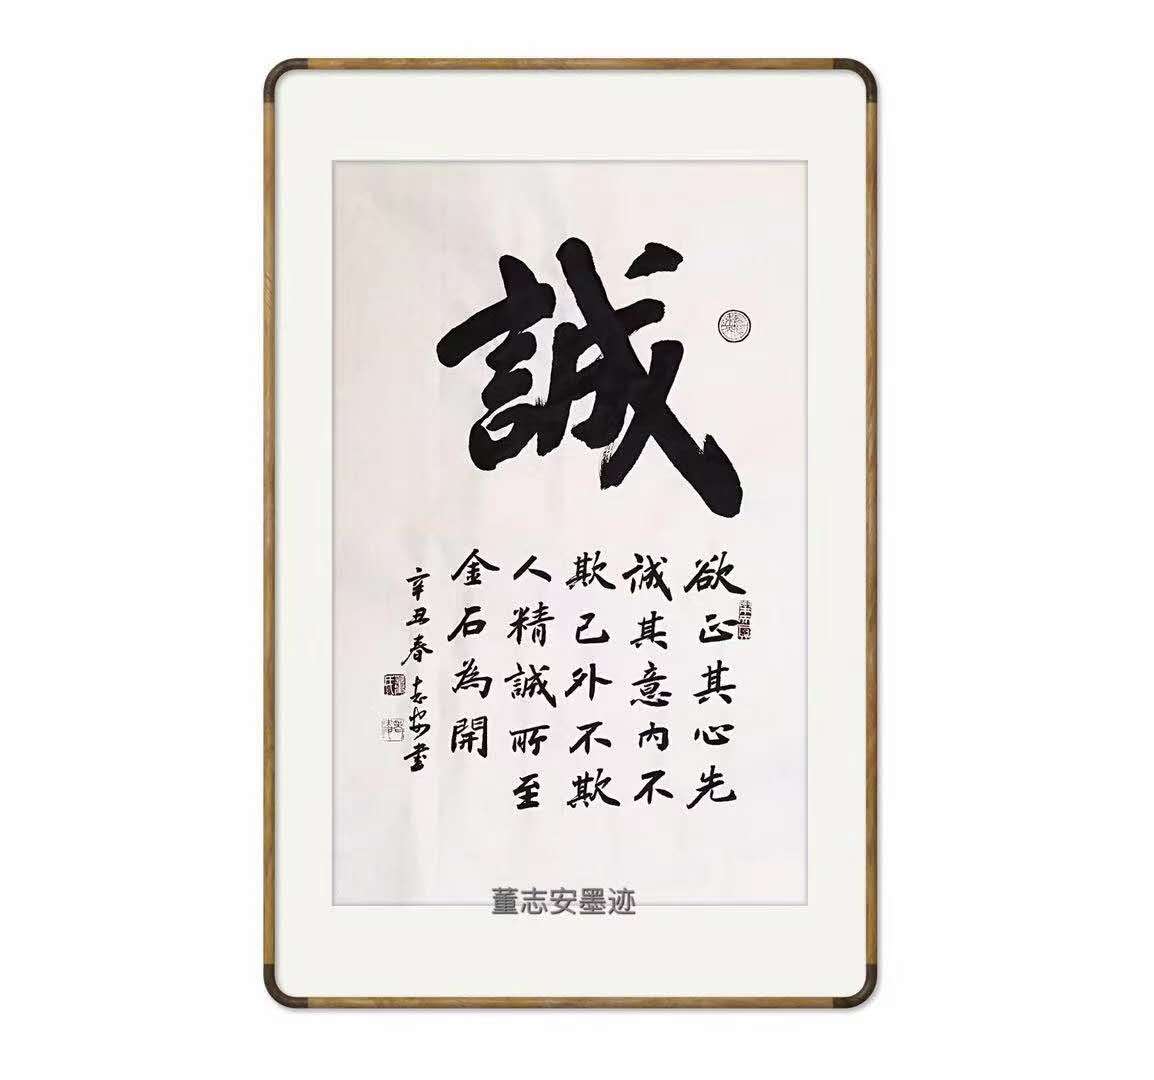 誠
欲正其心先
誠其意内不
欺己外不欺
人精誠所至
金石為開
辛丑春志安書
董志安墨迹